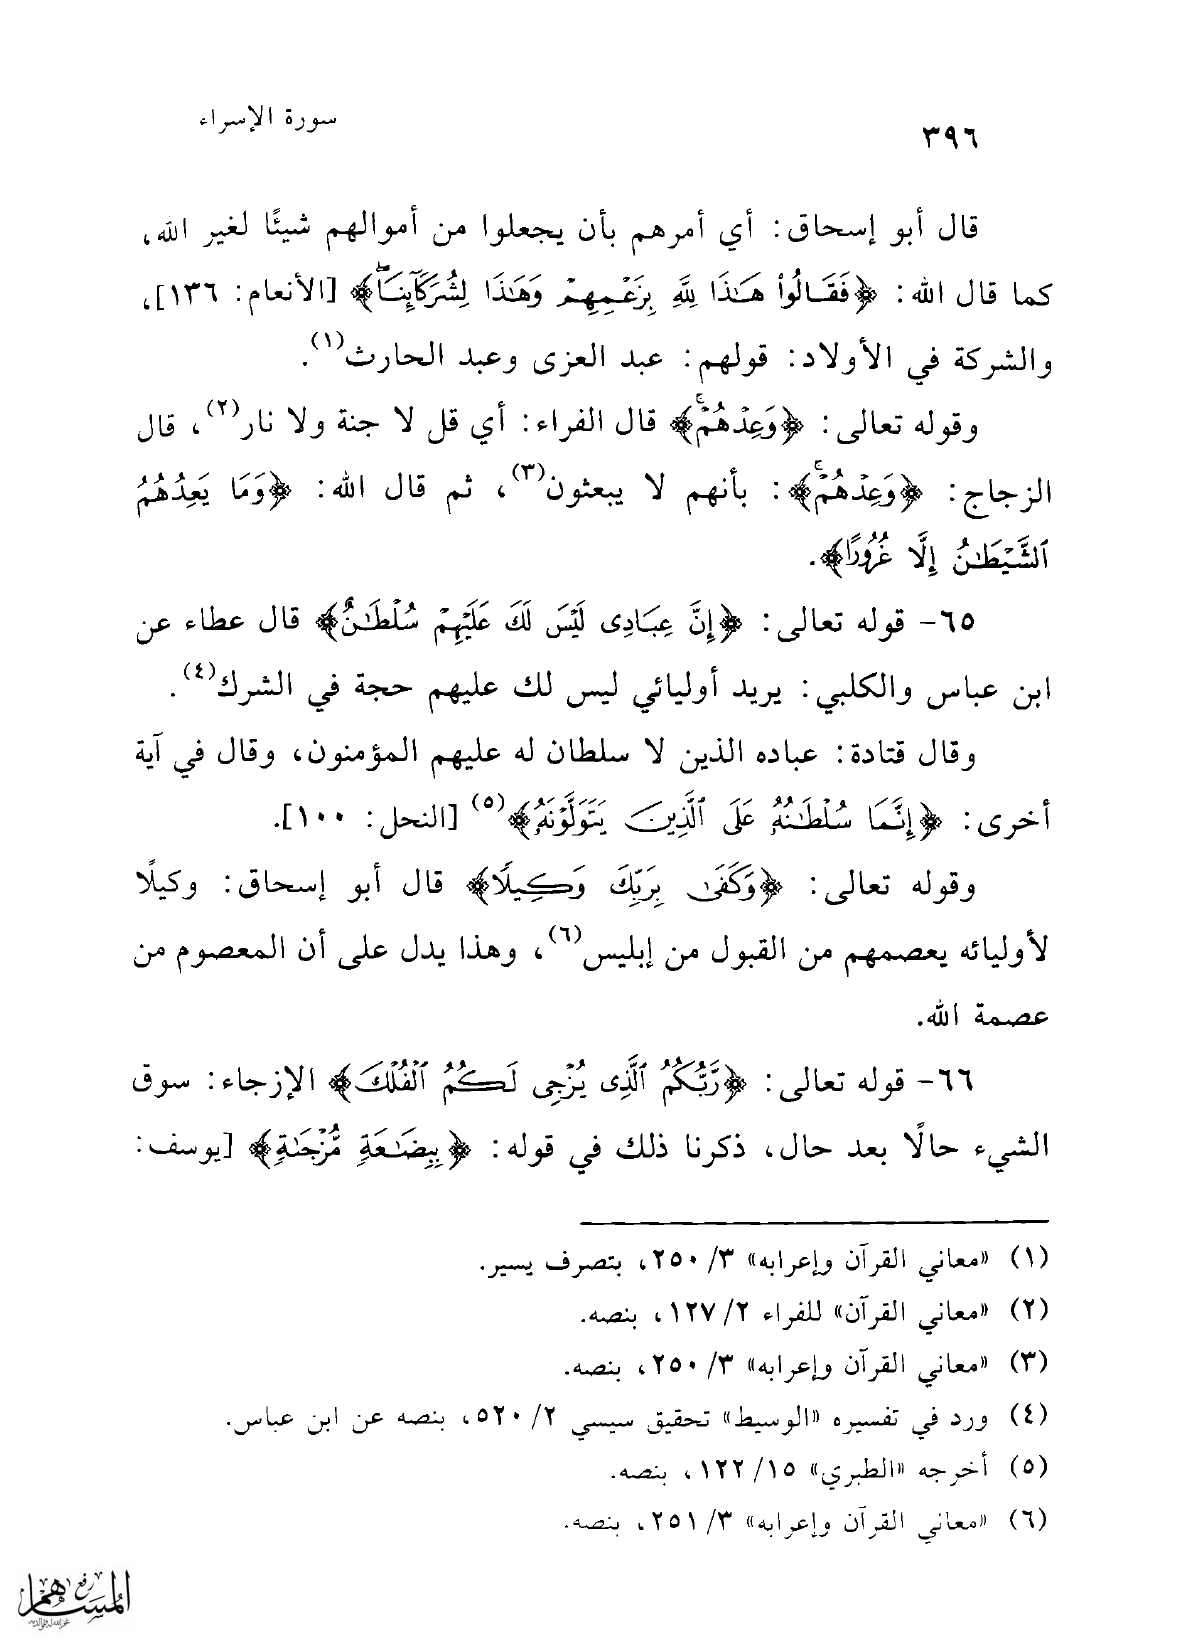 سورة الإسراء
٣٩٦
قال أبو إسحاق: أي أمرهم بأن يجعلوا من أموالهم شيئًا لغير الله،
كما قال الله: ﴿فَقَالُواْ هَٰذَا لِلَّهِ بِزَعۡمِهِمۡ وَهَٰذَا لِشُرَكَآئِنَاۖ﴾ [الأنعام: ١٣٦]،
والشركة في الأولاد: قولهم: عبد العزى وعبد الحارث(١).
وقوله تعالى: ﴿وَعِدۡهُمۡۚ﴾ قال الفراء: أي قل لا جنة ولا نار(٢)، قال
الزجاج: ﴿وَعِدۡهُمۡۚ﴾: بأنهم لا يبعثون(٣)، ثم قال الله: ﴿وَمَا يَعِدُهُمُ
ٱلشَّيۡطَٰنُ إِلَّا غُرُورًا﴾.
٦٥- قوله تعالى: ﴿إِنَّ عِبَادِى لَيۡسَ لَكَ عَلَيۡهِمۡ سُلۡطَٰنٌ﴾ قال عطاء عن
ابن عباس والكلبي: يريد أوليائي ليس لك عليهم حجة في الشرك(٤).
وقال قتادة: عباده الذين لا سلطان له عليهم المؤمنون، وقال في آية
أخرى: ﴿إِنَّمَا سُلۡطَٰنُهُۥ عَلَى ٱلَّذِينَ يَتَوَلَّوۡنَهُۥ﴾(٥) [النحل: ١٠٠].
وقوله تعالى: ﴿وَكَفَىٰ بِرَبِّكَ وَكِيلًا﴾ قال أبو إسحاق: وكيلًا
لأوليائه يعصمهم من القبول من إبليس(٦)، وهذا يدل على أن المعصوم من
عصمة الله.
٦٦- قوله تعالى: ﴿رَّبُّكُمُ ٱلَّذِى يُزۡجِى لَكُمُ ٱلۡفُلۡكَ﴾ الإزجاء: سوق
الشيء حالًا بعد حال، ذكرنا ذلك في قوله: ﴿بِبِضَٰعَةٍ مُّزۡجَىٰةٍ﴾ [يوسف:
(١) «معاني القرآن وإعرابه» ٣/ ٢٥٠، بتصرف يسير.
(٢) «معاني القرآن» للفراء ٢/ ١٢٧، بنصه.
(٣) «معاني القرآن وإعرابه» ٣/ ٢٥٠، بنصه.
(٤) ورد في تفسيره «الوسيط» تحقيق سيسي ٢/ ٥٢٠، بنصه عن ابن عباس.
(٥) أخرجه «الطبري» ١٥/ ١٢٢، بنصه.
(٦) «معاني القرآن وإعرابه» ٣/ ٢٥١، بنصه.